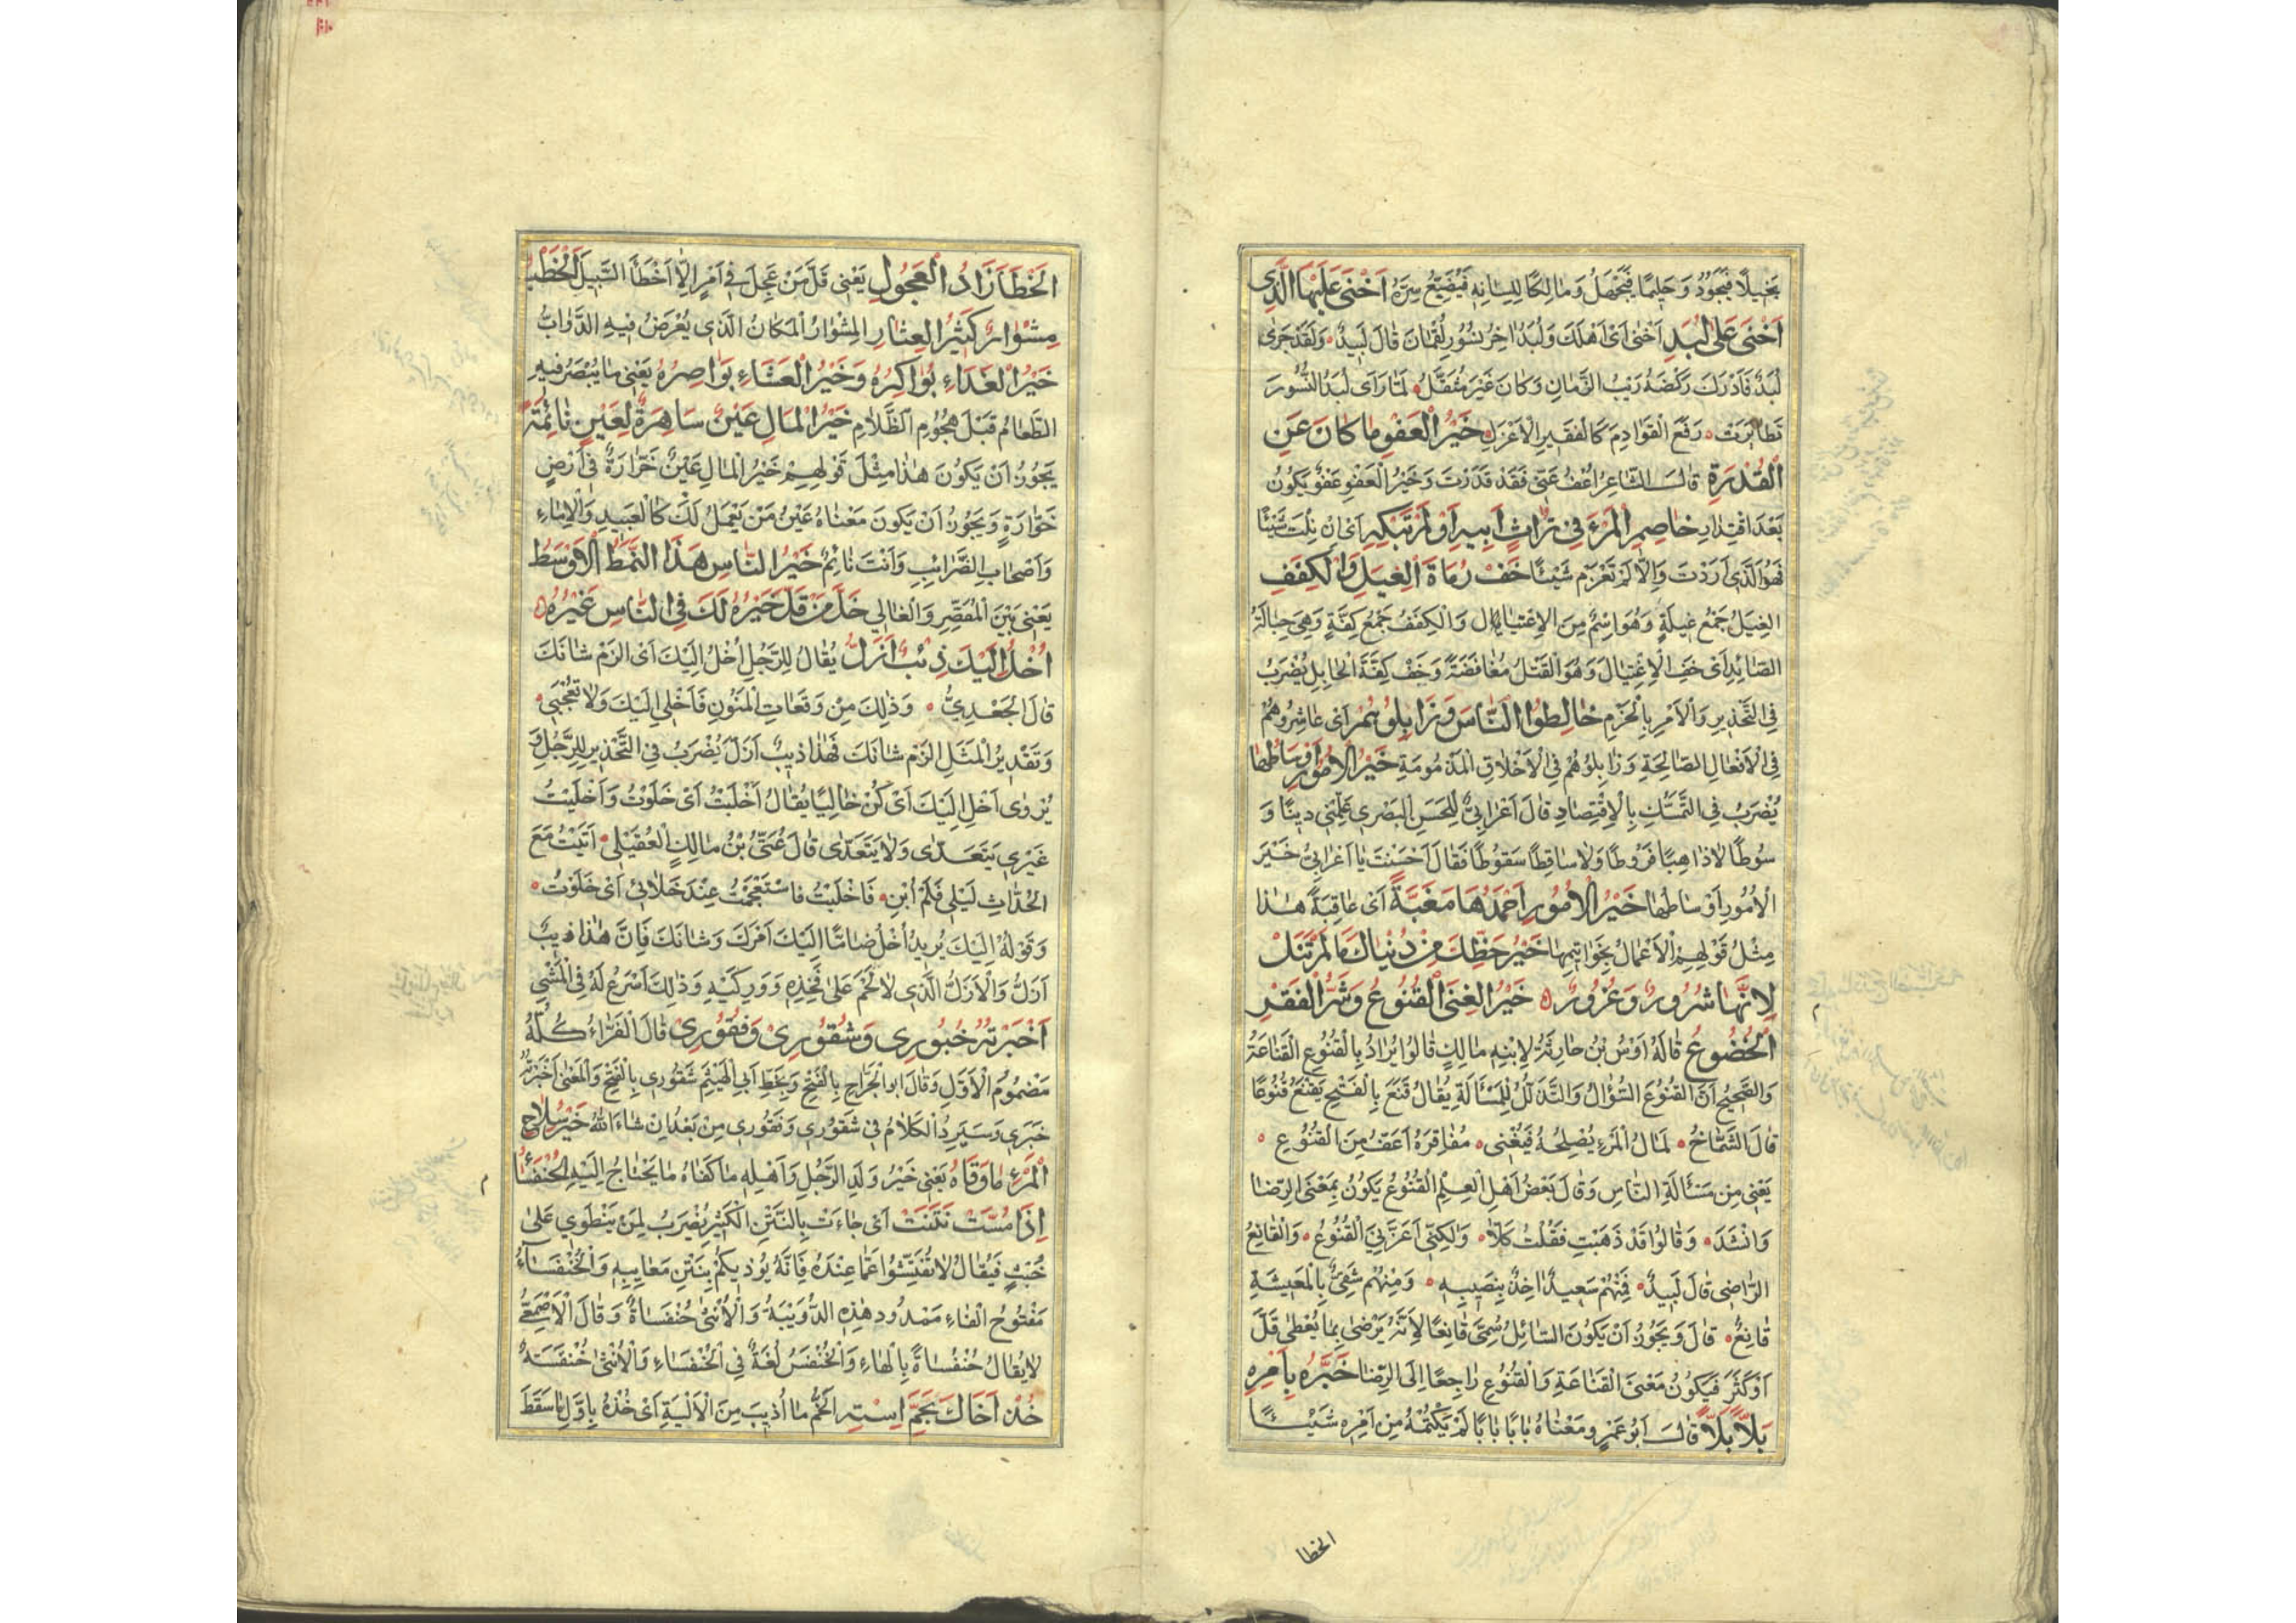 بَخِيلًا فَيَجُودُ وَحَلِيمًا فَيَجْهَلُ وَمَالِكًا لِلِسَانِهِ فَيُضَيِّعُ سِرَّهُ اَخْنَى عَلَيْهَا الَّذِى
اَخْنَى عَلَى لُبَدِ اَخْنَى اَىْ اَهْلَكَ وَلُبَدُ اٰخِرُ نُسُورِ لُقْمَانَ قَالَ لَبِيدٌ وَلَقَدْ جَرَى
لُبَدٌ فَاَدْرَكَ رَكْضَهُ رَيْبُ الزَّمَانِ وَكَانَ غَيْرَ مُثَقَّلُ لَمَّا رَاَى لُبَدُ النُّسُورَ
تَطَايَرَتْ رَفَعَ الْقَوَادِمَ كَالْفَقِيرِ الْاَعْزَلِ خَيْرُ الْعَفْوِ مَا كَانَ عَنِ
الْقُدْرَةِ قَالَ الشَّاعِرُ اُعْفُ عَنِّى فَقَدْ قَدَرْتَ وَخَيْرُ الْعَفْوِ عَفْوٌ يَكُونُ
بَعْدَ اقْتِدَارِ خَاصِمِ الْمَرْءَ فِى تُرَاثِ اَبِيهِ اَوْ لَمْ تَبْكِهِ اَىْ اِنْ نِلْتَ شَيْئًا
فَهُوَ الَّذِى اَرَدْتَ وَاِلَّا لَمْ تَغْرَمْ شَيْئًا خَفْ رُمَاةَ الْغِيَلِ وَالْكِفَفِ
الْغِيَلُ جَمْعُ غِيلَةٍ وَهُوَ اِسْمٌ مِنَ الْاِغْتِيَالِ وَالْكِفَفُ جَمْعُ كِفَّةٍ وَهِىَ حِبَالَةُ
الصَّائِدِ اَىْ خَفِ الْاِغْتِيَالَ وَهُوَ الْقَتْلُ مُغَافَصَةً وَخَفْ كِفَّةَ الْحَابِلِ يُضْرَبُ
فِى التَّحْذِيرِ وَالْاَمْرِ بِالْحَزْمِ خَالِطُوا النَّاسَ وَزَايِلُوهُمْ اَىْ عَاشِرُوهُمْ
فِى الْاَفْعَالِ الصَّالِحَةِ وَزَايِلُوهُمْ فِى الْاَخْلَاقِ الْمَذْمُومَةِ خَيْرُ الْاُمُورِ اَوْسَاطُهَا
يُضْرَبُ فِى التَّمَسُّكِ بِالْاِقْتِصَادِ قَالَ اَعْرَابِىٌّ لِلْحَسَنِ الْبَصْرِى عَلِّمْنِى دِينًا وَ
سُوطًا لَا ذَاهِبًا فَرُوطًا وَلَا سَاقِطًا سَقُوطًا فَقَالَ اَحْسَنْتَ يَا اَعْرَابِىُّ خَيْرَ
الْاُمُورِ اَوْسَاطُهَا خَيْرُ الْاُمُورِ اَحْمَدُهَا مَغَبَّةً اَىْ عَاقِبَةً هٰذَا
مِثْلُ قَوْلِهِمْ الْاَعْمَالُ بِخَوَاتِيمِهَا خَيْرُ حَظِّكَ مِنْ دُنْيَاكَ مَا لَمْ تَنَلْ
لِاَنَّهَا شُرُورٌ وَغُرُورٌ خَيْرُ الْغِنَى الْقُنُوعُ وَشَرُّ الْفَقْرِ
الْخُضُوعُ قَالَهُ اَوْسُ بْنُ حَارِثَةَ لِابْنِهِ مَالِكٍ قَالُوا يُرَادُ بِالْقُنُوعِ الْقَنَاعَةُ
وَالصَّحِيحُ اَنَّ الْقُنُوعَ السُّؤَالُ وَالتَّذَلُّلُ لِلْمَسْاَلَةِ يُقَالُ قَنَعَ بِالْفَتْحِ يَقْنَعُ قُنُوعًا
قَالَ الشَّمَّاخُ لَمَالُ الْمَرْءِ يُصْلِحُهُ فَيُغْنِى مَفَاقِرَهُ اَعَفُّ مِنَ الْقُنُوعِ
يَعْنِى مِنْ مَسْئَالَةِ النَّاسِ وَقَالَ بَعْضُ اَهْلِ الْعِلْمِ الْقُنُوعُ يَكُونُ بِمَعْنَى الرِّضَا
وَانْشَدَ وَقَالُوا قَدْ ذَهَبْتِ فَقُلْتُ كَلَّا وَلٰكِنِّى اَعَزَّنِىَ الْقُنُوعُ وَالْقَانِعُ
الرَّاضِى قَالَ لَبِيدٌ فَمِنْهُمْ سَعِيدٌ اٰخِذٌ بِنَصِيبِهِ وَمِنْهُمْ شَقِىٌّ بِالْمَعِيشَةِ
قَانِعُ قَالَ وَيَجُوزُ اَنْ يَكُونَ السَّائِلُ سُمِّىَ قَانِعًا لِاَنَّهُ يَرْضَى بِمَا يُعْطَى قَلَّ
اَوْ كَثُرَ فَيَكُونُ مَعْنَى الْقَنَاعَةِ وَالْقُنُوعِ رَاجِعًا اِلَى الرِّضَا خَبَّرَهُ بِاَمْرِهِ
بَلًّا بَلًّا قَالَ اَبُو عَمْرٍو وَمَعْنَاهُ بَابًا بَابًا لَمْ يَكْتُمْهُ مِنْ اَمْرِهِ شَيْئًا
الخطا
الْخَطَا زَادُ الْعَجُولِ يَعْنِى قَلَّ مَنْ عَجِلَ فِى اَمْرٍ اِلَّا اَخْطَاَ السَّبِيلَ الْخُطَبُ
مِشْوَارٌ كَثِيرُ الْعِثَارِ الْمِشْوَارُ الْمَكَانُ الَّذِى يُعْرَضُ فِيهِ الدَّوَابُّ
خَيْرُ الْغَدَاءِ بَوَاكِرُهُ وَخَيْرُ الْعَشَاءِ بَوَاصِرُهُ يَعْنِى مَا يُبْصَرُ فِيهِ
الطَّعَامُ قَبْلَ هُجُومِ الظَّلَامِ خَيْرُ الْمَالِ عَيْنٌ سَاهِرَةٌ لِعَيْنٍ نَائِمَةٍ
يَجُوزُ اَنْ يَكُونَ هٰذَا مِثْلَ قَوْلِهِمْ خَيْرُ الْمَالِ عَيْنٌ خَرَّارَةٌ فِى اَرْضٍ
خَوَّارَةٍ وَيَجُوزُ اَنْ يَكُونَ مَعْنَاهُ عَيْنُ مَنْ يَعْمَلُ لَكَ كَالْعَبِيدِ وَالْاِمَاءِ
وَاَصْحَابِ الضَّرَائِبِ وَاَنْتَ نَائِمٌ خَيْرُ النَّاسِ هَذَا النَّمَطُ الْاَوْسَطُ
يَعْنِى بَيْنَ الْمُقَصِّرِ وَالْغَالِى خَلِّ مَنْ قَلَّ خَيْرُهُ لَكَ فِى النَّاسِ غَيْرُهُ
اُخْلُ اِلَيْكَ ذِئْبٌ اَزَلُّ يُقَالُ لِلرَّجُلِ اُخْلُ اِلَيْكَ اَىْ الْزَمْ شَانَكَ
قَالَ الْجَعْدِىُّ وَذٰلِكَ مِنْ وَقَعَاتِ الْمَنُونِ فَاَخْلِى اِلَيْكَ وَلَا تَعْجَبِى
وَتَقْدِيرُ الْمَثَلِ الْزَمْ شَانَكَ فَهٰذَا ذِيبٌ اَزَلُّ يُضْرَبُ فِى التَّحْذِيرِ لِلرَّجُلِ وَ
يُرْوٰى اَخْلِ اِلَيْكَ اَىْ كُنْ خَالِيًا يُقَالُ اَخْلَيْتُ اَىْ خَلَوْتُ وَاَخْلَيْتُ
غَيْرِى يَتَعَدَّى وَلَا يَتَعَدَّى قَالَ عُتَىُّ بْنُ مَالِكٍ الْعُقَيْلِى اَتَيْتُ مَعَ
الْحُدَّاثِ لَيْلَى فَلَمْ اُبِنِ فَاَخْلَيْتُ فَاسْتَعْجَمْتُ عِنْدَ خَلَائِى اَىْ خَلَوْتُ
وَقَوْلُهُ اِلَيْكَ يُرِيدُ اُخْلُ ضَامًّا اِلَيْكَ اَمْرَكَ وَشَانَكَ فَاِنَّ هٰذَا ذِيبٌ
اَزَلُّ وَالْاَزَلُّ الَّذِى لَا لَحْمَ عَلَى فَخِذِهِ وَوَرِكَيْهِ وَذٰلِكَ اَسْرَعُ لَهُ فِى الْمَشْىِ
اَخْبَرْتُهُ خُبُورِى وَشُقُورِى وَفُقُورِى قَالَ الْفَرَّاءُ كُلُّهُ
مَضْمُومُ الْاَوَّلِ وَقَالَ ابو الْجَرَّاحِ بِالْفَتْحِ وَبِخَطِّ اَبِى الْهَيْثَمِ شَقُورِى بِالْفَتْحِ وَالْمَعْنَى اَخْبَرْتُهُ
خَبَرِى وَسَيَرِدُ الْكَلَامُ فِى شَقُورِى وَفَقُورِى مِنْ بَعْدُ اِنْ شَاءَ اللّٰهُ خَيْرُ سِلَاحِ
الْمَرْءِ مَا وَقَاهُ يَعْنِى خَيْرُ وَلَدِ الرَّجُلِ وَاَهْلِهِ مَا كَفَاهُ مَا يَحْتَاجُ اِلَيْهِ الْخُنْفَسَاءُ
اِذَا مُسَّتْ نَتَنَتْ اَىْ جَاءَتْ بِالنَّتْنِ الْكَثِيرِ يُضْرَبُ لِمَنْ يَنْطَوِى عَلَى
خُبْثٍ فَيُقَالُ لَا تُفَتِّشُوا عَمَّا عِنْدَهُ فَاِنَّهُ يُؤْذِيكُمْ بِنَتْنِ مَعَايِبِهِ وَالْخُنْفَسَاءُ
مَفْتُوحُ الْفَاءِ مَمْدُود هٰذِهِ الدُّوَيْبَةُ وَالْاُنْثَى خُنْفَسَاةٌ وَقَالَ الْاَصْمَعِىُّ
لَا يُقَالُ خُنْفُسَاةٌ بِالْهَاءِ وَالْخُنْفَسُ لُغَةٌ فِى الْخُنْفَسَاءِ وَالْاُنْثَى خُنْفَسَةٌ
خُذْ اَخَاكَ بِحَمِّ اِسْتِهِ الْحَمُّ مَا اُذِيبَ مِنَ الْاَلْيَةِ اَىْ خُذْهُ بِاَوَّلِ مَا سَقَطَ